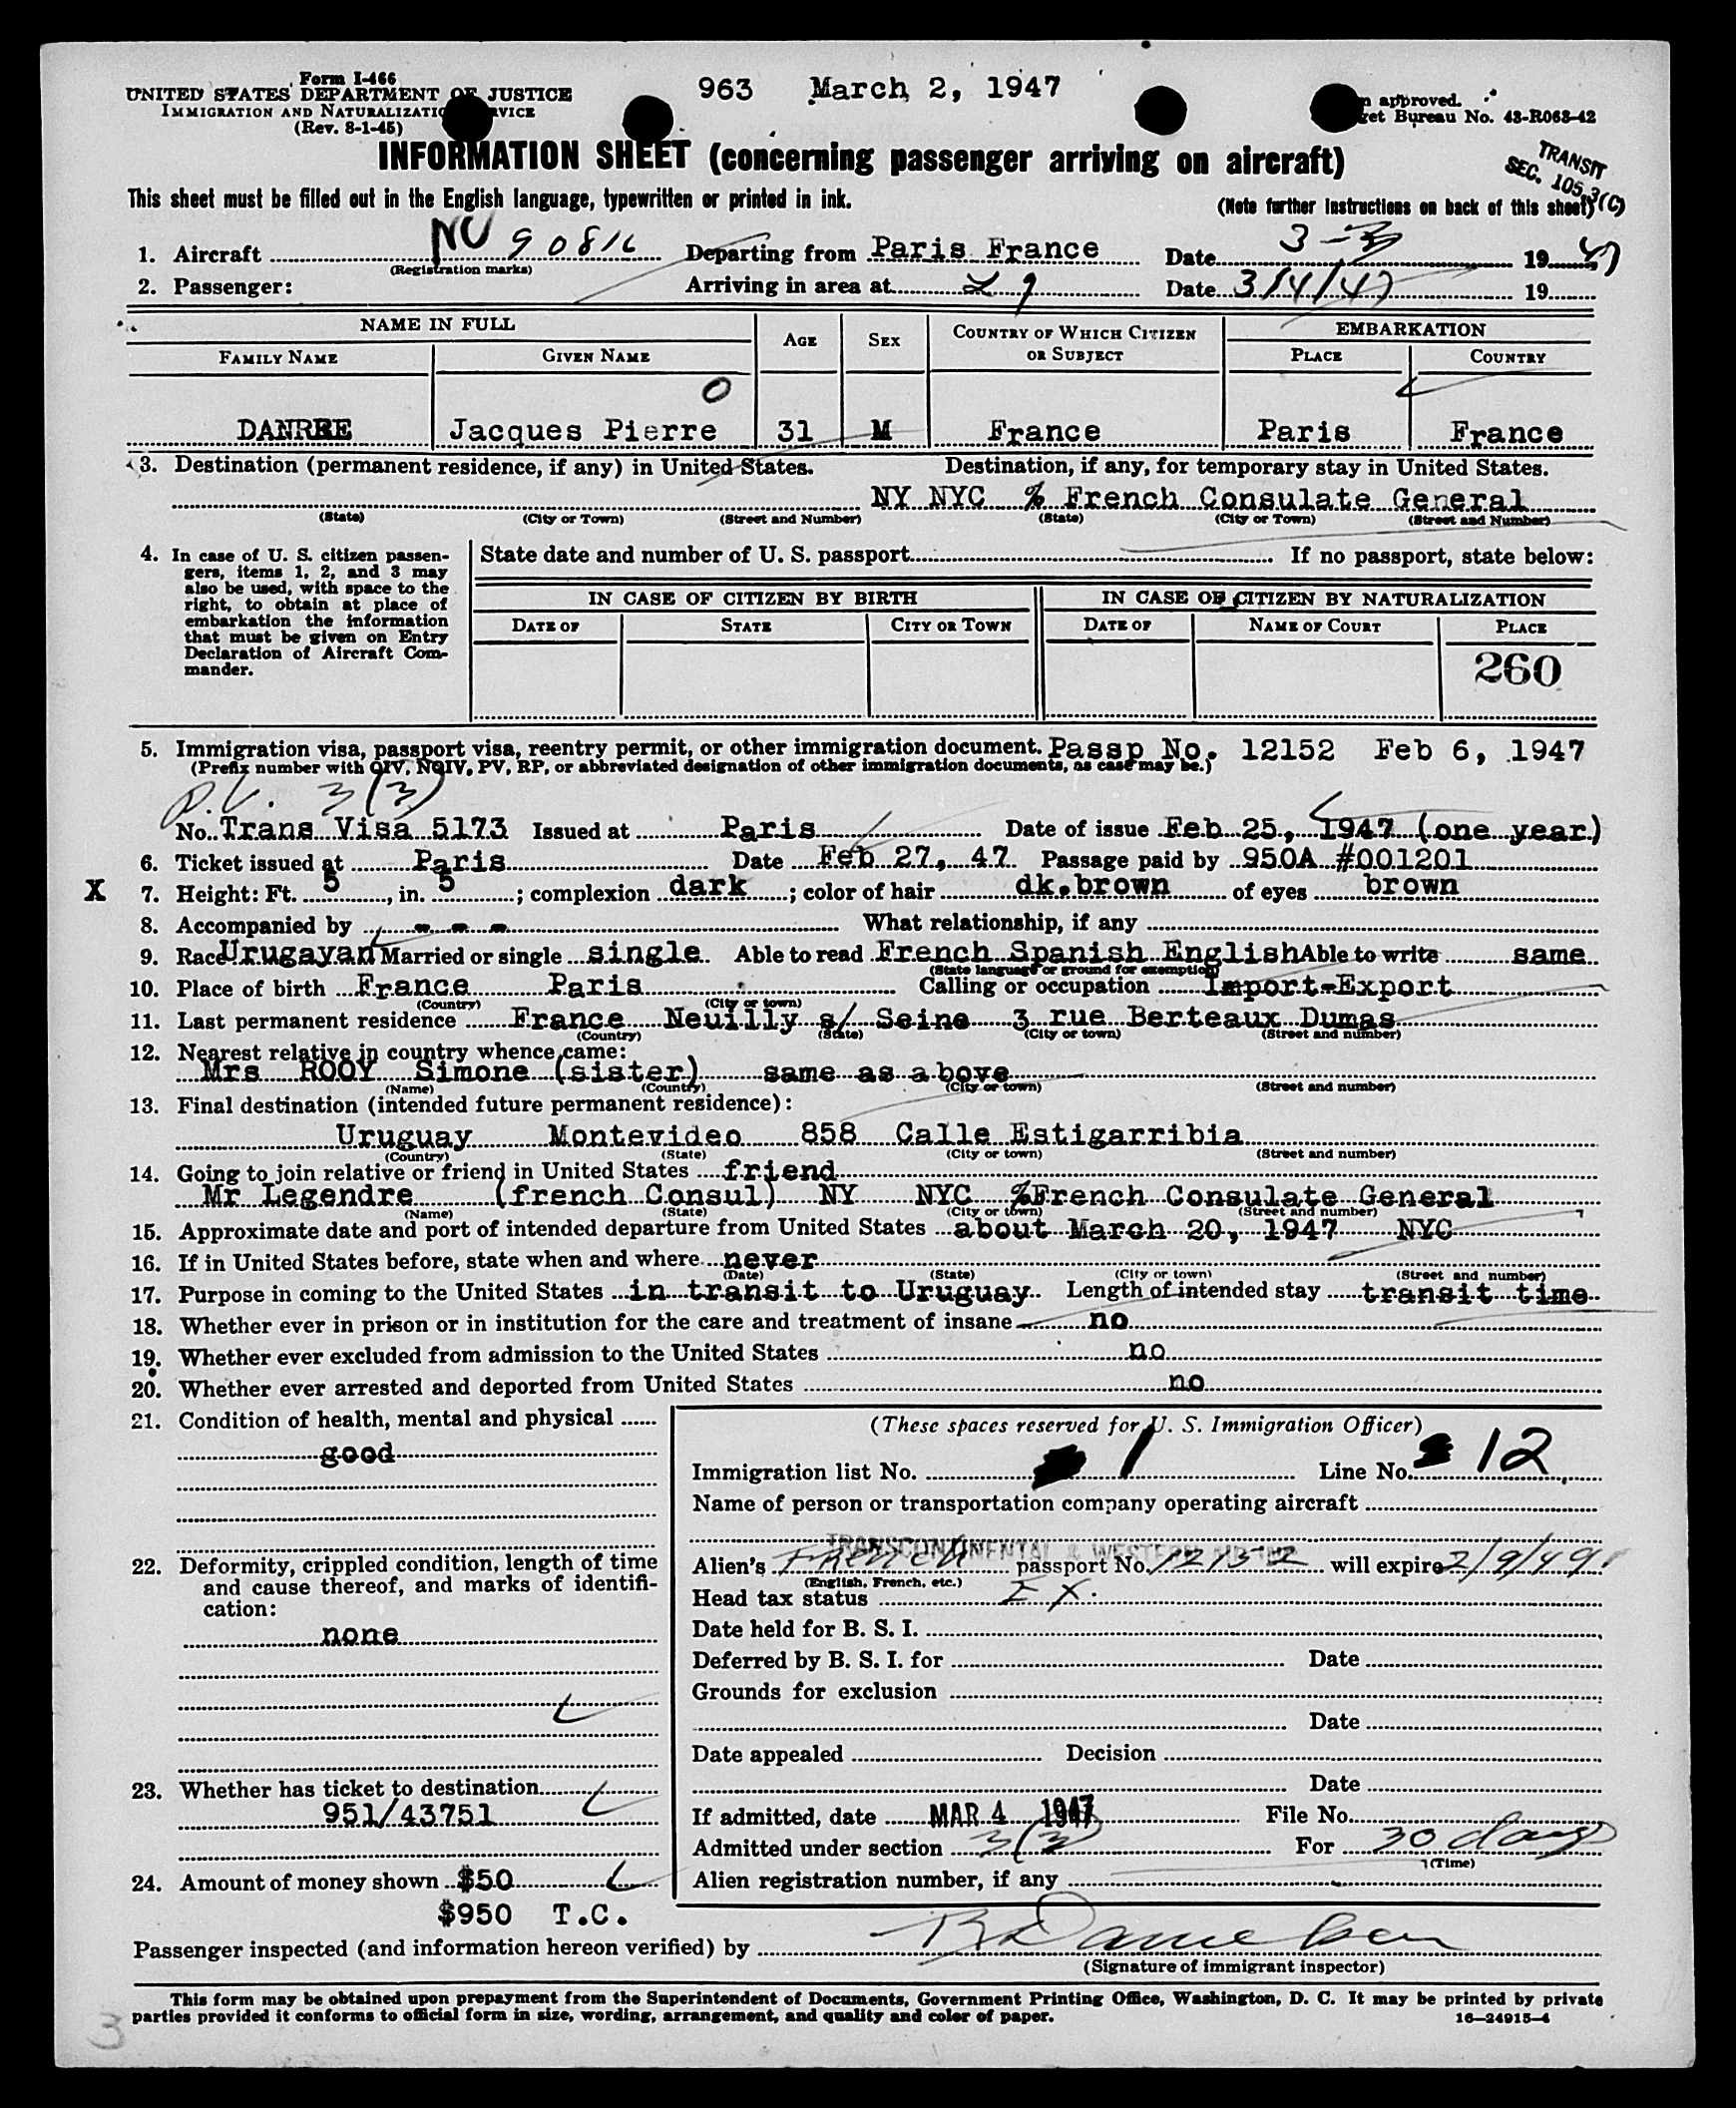 Form I-466
UNITED STATES DEPARTMENT OF JUSTICE
IMMIGRATION AND NATURALIZATION SERVICE
(Rev. 8-1-45)
963 March 2, 1947
approved.
Bureau No. 43-R063-42
INFORMATION SHEET (concerning passenger arriving on aircraft)
TRANSIT
SEC. 105.3(C)
This sheet must be filled out in the English language, typewritten or printed in ink.
(Note further instructions on back of this sheet)
1. Aircraft NC 90816 Departing from Paris France Date 3-3 1947
(Registration marks)
2. Passenger: Arriving in area at Date 3/4/47 19
NAME IN FULL AGE SEX COUNTRY OF WHICH CITIZEN OR SUBJECT EMBARKATION
FAMILY NAME GIVEN NAME PLACE COUNTRY
DANREE Jacques Pierre 31 M France Paris France
3. Destination (permanent residence, if any) in United States. Destination, if any, for temporary stay in United States.
NY NYC % French Consulate General
(State) (City or Town) (Street and Number) (State) (City or Town) (Street and Number)
4. In case of U. S. citizen passengers, items 1, 2, and 3 may also be used, with space to the right, to obtain at place of embarkation the information that must be given on Entry Declaration of Aircraft Commander.
State date and number of U. S. passport If no passport, state below:
IN CASE OF CITIZEN BY BIRTH IN CASE OF CITIZEN BY NATURALIZATION
DATE OF STATE CITY OR TOWN DATE OF NAME OF COURT PLACE
260
5. Immigration visa, passport visa, reentry permit, or other immigration document. Passp No. 12152 Feb 6, 1947
(Prefix number with QIV, NQIV, PV, RP, or abbreviated designation of other immigration documents, as case may be.)
P.V. 3(3)
No. Trans Visa 5173 Issued at Paris Date of issue Feb 25, 1947 (one year)
6. Ticket issued at Paris Date Feb 27, 47 Passage paid by 950A #001201
X 7. Height: Ft. 5, in. 5; complexion dark; color of hair dk.brown of eyes brown
8. Accompanied by - - - What relationship, if any
9. Race Urugayan Married or single single Able to read French Spanish English Able to write same
(State language or ground for exemption)
10. Place of birth France Paris Calling or occupation Import-Export
(Country) (City or town)
11. Last permanent residence France Neuilly s/ Seine 3 rue Berteaux Dumas
(Country) (State) (City or town) (Street and number)
12. Nearest relative in country whence came:
Mrs ROOY Simone (sister) same as above
(Name) (Country) (City or town) (Street and number)
13. Final destination (intended future permanent residence):
Uruguay Montevideo 858 Calle Estigarribia
(Country) (State) (City or town) (Street and number)
14. Going to join relative or friend in United States friend
Mr Legendre (french Consul) NY NYC %French Consulate General
(Name) (State) (City or town) (Street and number)
15. Approximate date and port of intended departure from United States about March 20, 1947 NYC
16. If in United States before, state when and where never
(Date) (State) (City or town) (Street and number)
17. Purpose in coming to the United States in transit to Uruguay Length of intended stay transit time
18. Whether ever in prison or in institution for the care and treatment of insane no
19. Whether ever excluded from admission to the United States no
20. Whether ever arrested and deported from United States no
21. Condition of health, mental and physical
good
22. Deformity, crippled condition, length of time and cause thereof, and marks of identification:
none
23. Whether has ticket to destination
951/43751
24. Amount of money shown $50
$950 T.C.
(These spaces reserved for U. S. Immigration Officer)
Immigration list No. 1 Line No. 12
Name of person or transportation company operating aircraft
TRANSCONTINENTAL & WESTERN AIR
Alien's French passport No. 12152 will expire 2/9/49
(English, French, etc.)
Head tax status EX.
Date held for B. S. I.
Deferred by B. S. I. for Date
Grounds for exclusion
Date
Date appealed Decision
Date
If admitted, date MAR 4 1947 File No.
Admitted under section 3(3) For 30 days
(Time)
Alien registration number, if any
Passenger inspected (and information hereon verified) by
(Signature of immigrant inspector)
This form may be obtained upon prepayment from the Superintendent of Documents, Government Printing Office, Washington, D. C. It may be printed by private
parties provided it conforms to official form in size, wording, arrangement, and quality and color of paper.
16—24915-4
3